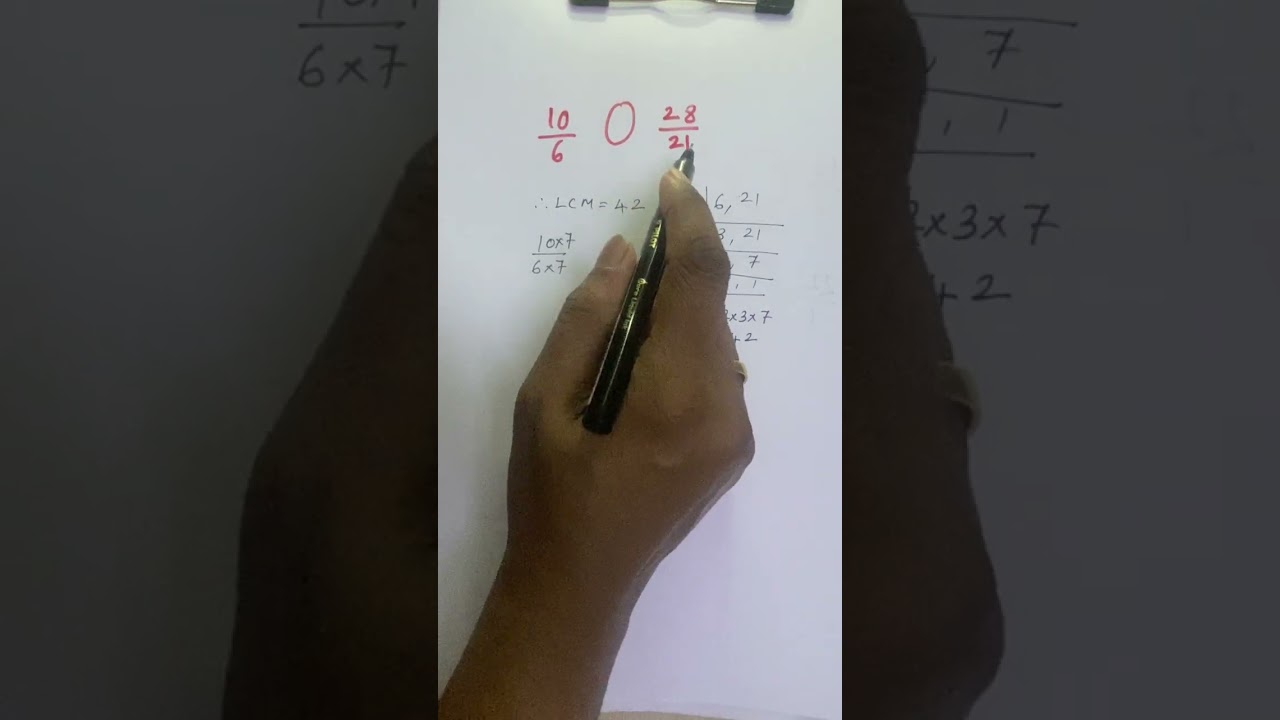 10/6 O 28/21
∴ LCM = 42
10×7/6×7
6, 21
3, 21
, 7
, 1
×3×7
42